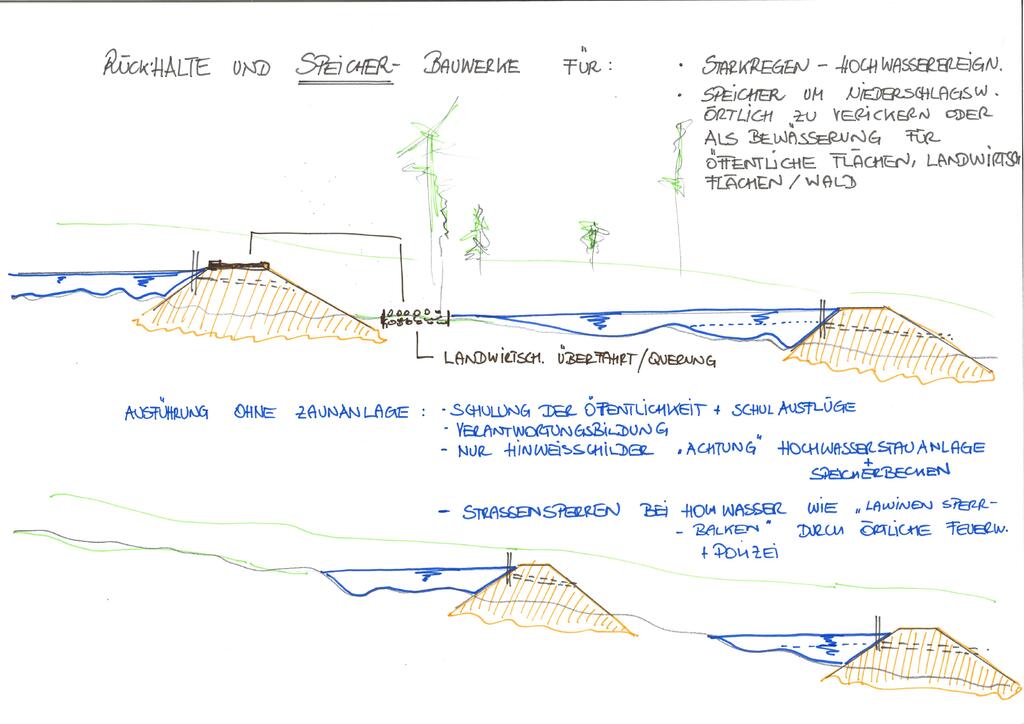 RÜCKHALTE UND SPEICHER- BAUWERKE FÜR:
· STARKREGEN - HOCHWASSEREREIGN.
· SPEICHER UM NIEDERSCHLAGSW.
ÖRTLICH ZU VERICKERN ODER
ALS BEWÄSSERUNG FÜR
ÖFFENTLICHE FLÄCHEN, LANDWIRTSCH
FLÄCHEN / WALD
LANDWIRTSCH. ÜBERFAHRT/QUERUNG
AUSFÜHRUNG OHNE ZAUNANLAGE: · SCHULUNG DER ÖFFENTLICHKEIT + SCHULAUSFLÜGE
- VERANTWORTUNGSBILDUNG
- NUR HINWEISSCHILDER "ACHTUNG" HOCHWASSERSTAUANLAGE
+
SPEICHERBECKEN
- STRASSENSPERREN BEI HOCHWASSER WIE „LAWINEN SPERR-
- BALKEN" DURCH ÖRTLICHE FEUERW.
+ POLIZEI